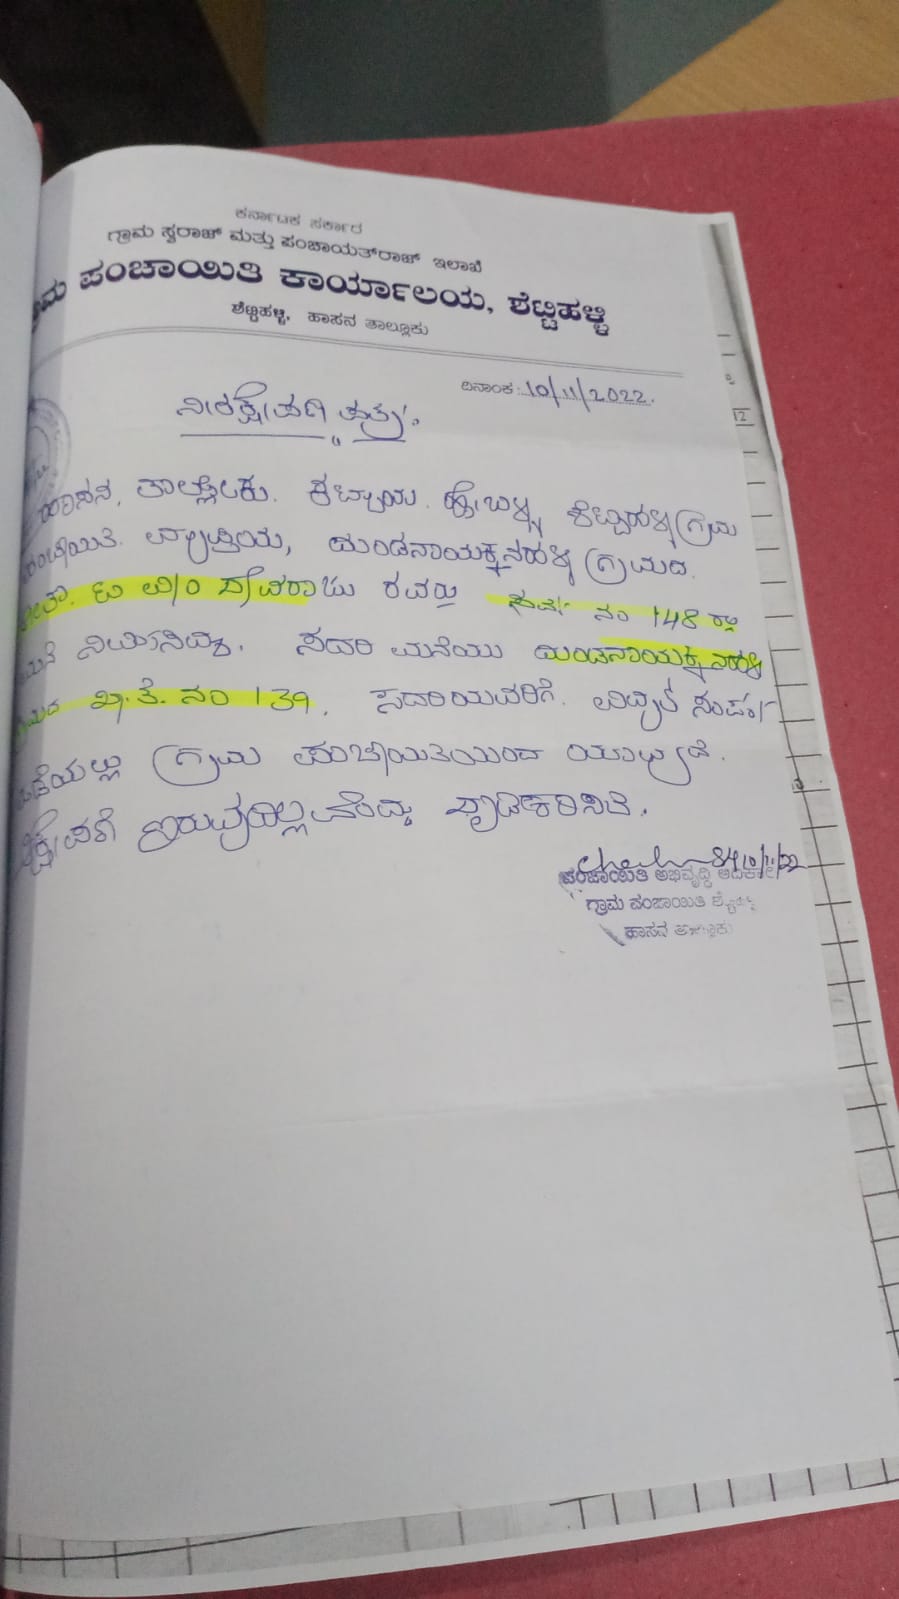 ಕರ್ನಾಟಕ ಸರ್ಕಾರ
ಗ್ರಾಮ ಸ್ವರಾಜ್ ಮತ್ತು ಪಂಚಾಯತ್‌ರಾಜ್ ಇಲಾಖೆ
ಪಂಚಾಯಿತಿ ಕಾರ್ಯಾಲಯ, ಶೆಟ್ಟಿಹಳ್ಳಿ
ಶೆಟ್ಟಿಹಳ್ಳಿ, ಹಾಸನ ತಾಲ್ಲೂಕು
ದಿನಾಂಕ: 10/11/2022.
ಪತ್ರ.
ಹಾಸನ, ತಾಲ್ಲೂಕು. ಕಟ್ಟಾಯ. ಹೋಬಳಿ, ಶೆಟ್ಟಿಹಳ್ಳಿ ಗ್ರಾಮ
ಪಂಚಾಯಿತಿ. ವ್ಯಾಪ್ತಿಯ, ದಂಡನಾಯಕ್ನನಹಳ್ಳಿ ಗ್ರಾಮದ.
ದೇವರಾಜು ರವರು ಸರ್ವೆ ನಂ 148 ರಲ್ಲಿ
ಸದರಿ ಮನೆಯು ದಂಡನಾಯಕ್ನನಹಳ್ಳಿ
ಖಾ.ತೆ. ನಂ 139, ಸದರಿಯವರಿಗೆ. ವಿದ್ಯುತ್ ಸಂಪರ್ಕ
ಗ್ರಾಮ ಪಂಚಾಯಿತಿಯಿಂದ ಯಾವುದೆ.
ಇರುವುದಿಲ್ಲವೆಂದು ದೃಢಿಕರಿಸಿದೆ.
10/11/22
ಪಂಚಾಯಿತಿ ಅಭಿವೃದ್ಧಿ ಅಧಿಕಾರಿ
ಗ್ರಾಮ ಪಂಚಾಯಿತಿ
ಹಾಸನ ತಾಲ್ಲೂಕು